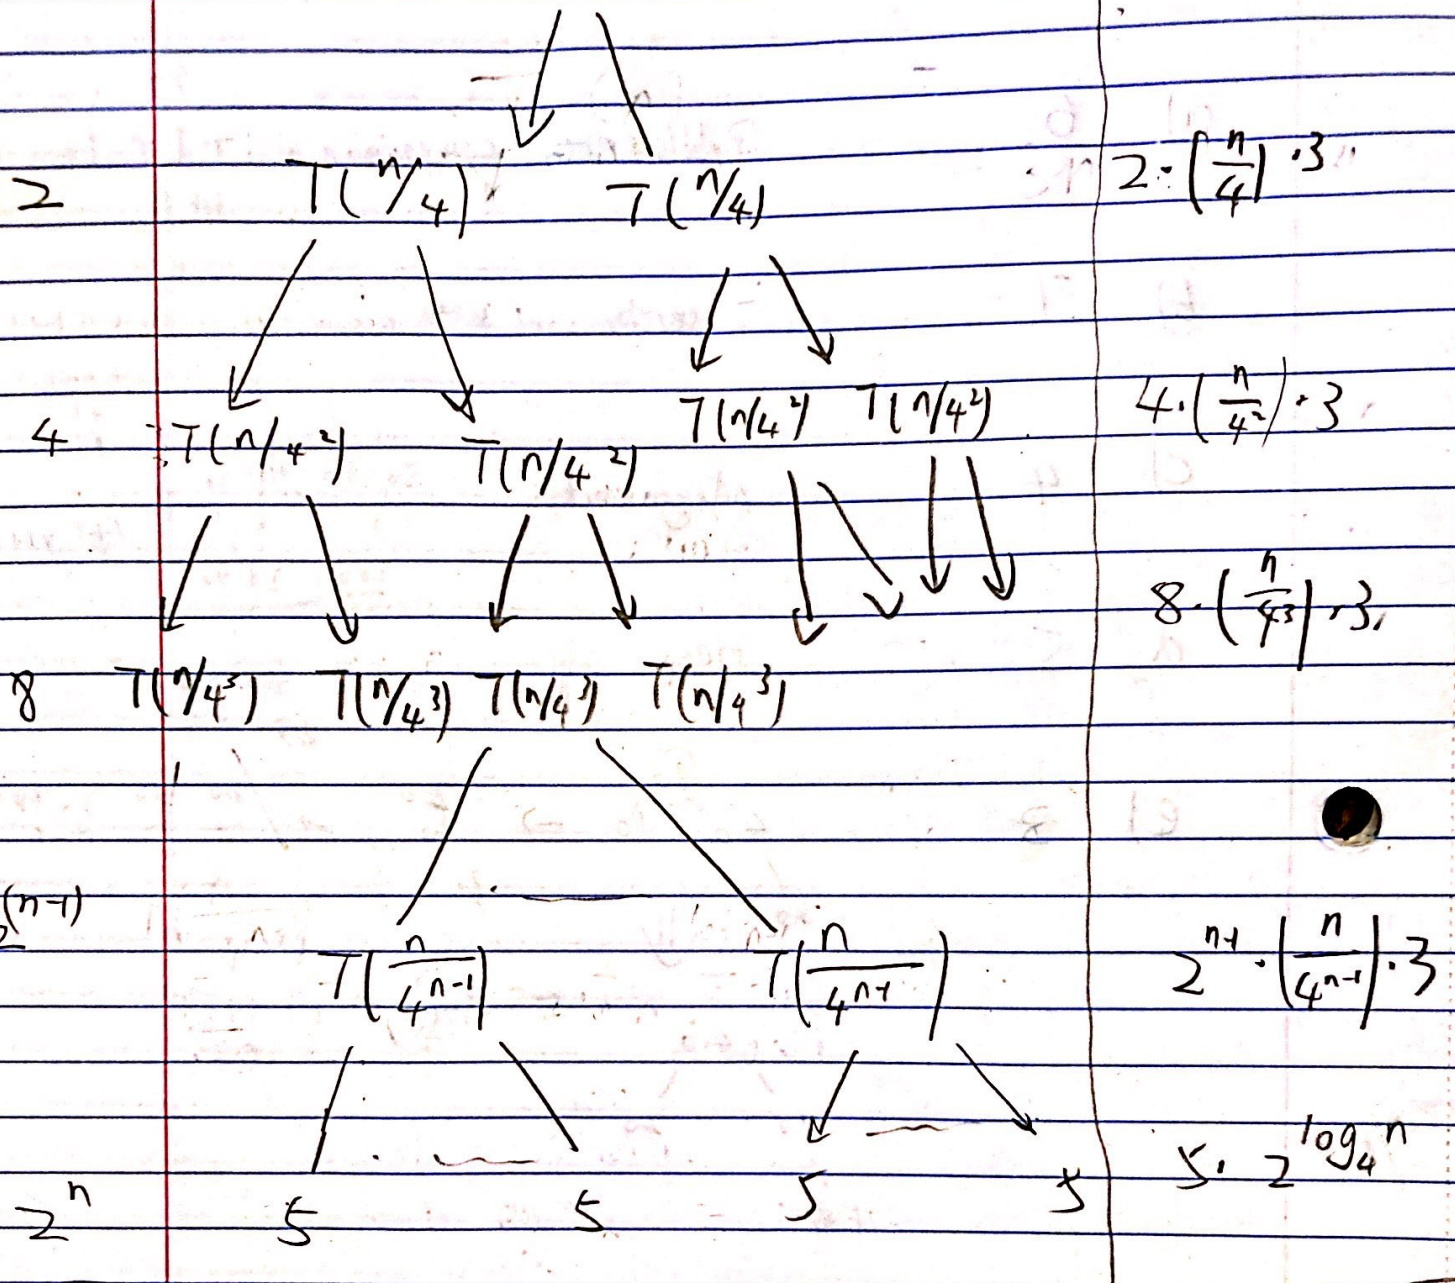 2 T(n/4) T(n/4) 2·(n/4)·3
4 T(n/4²) T(n/4²) T(n/4²) T(n/4²) 4·(n/4²)·3
8 T(n/4³) T(n/4³) T(n/4³) T(n/4³) 8·(n/4³)·3
2^(n-1) T(n/4^(n-1)) T(n/4^(n-1)) 2^(n-1)·(n/4^(n-1))·3
2^n 5 5 5 5 5·2^(log₄n)